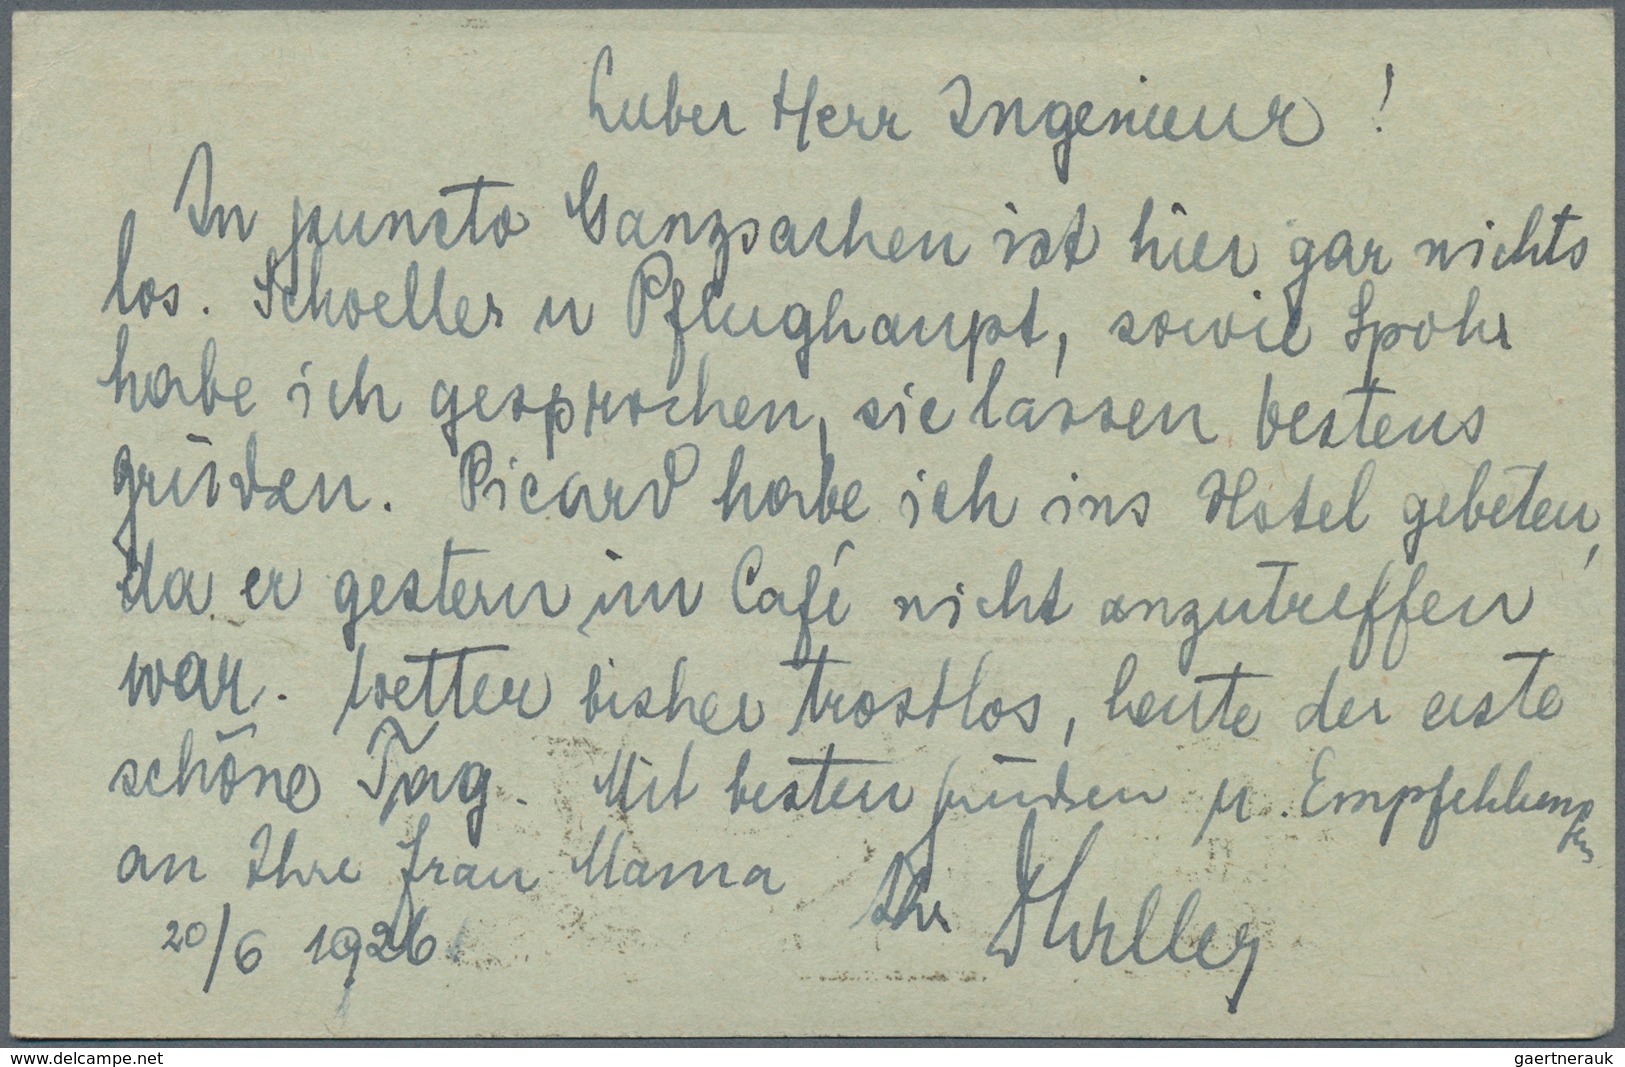 Lieber Herr Ingenieur!
In puncto Ganzsachen ist hier gar nichts
los. Schoeller u Pflughaupt, sowie Spohr
habe ich gesprochen, sie lassen bestens
grüßen. Picard habe ich ins Hotel gebeten,
da er gestern im Café nicht anzutreffen
war. Wetter bisher trostlos, heute der erste
schöne Tag. Mit besten Grüßen u. Empfehlungen
an Ihre Frau Mama Ihr
20/6 1926
www.delcampe.net
gaertnerauk